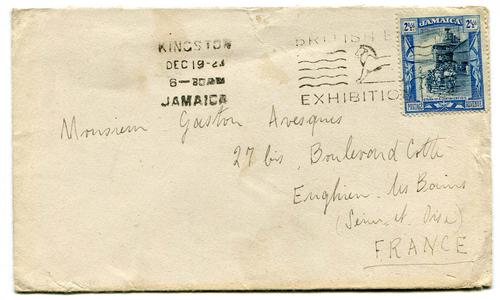 KINGSTON
DEC 19-23
8-30AM
JAMAICA
BRITISH E
EXHIBITIO
2½d 2½d
JAMAICA
POSTAGE REVENUE
Monsieur Gaston Avesques
27 bis, Boulevard Cotte
Enghien les Bains
(Seine et Oise)
FRANCE